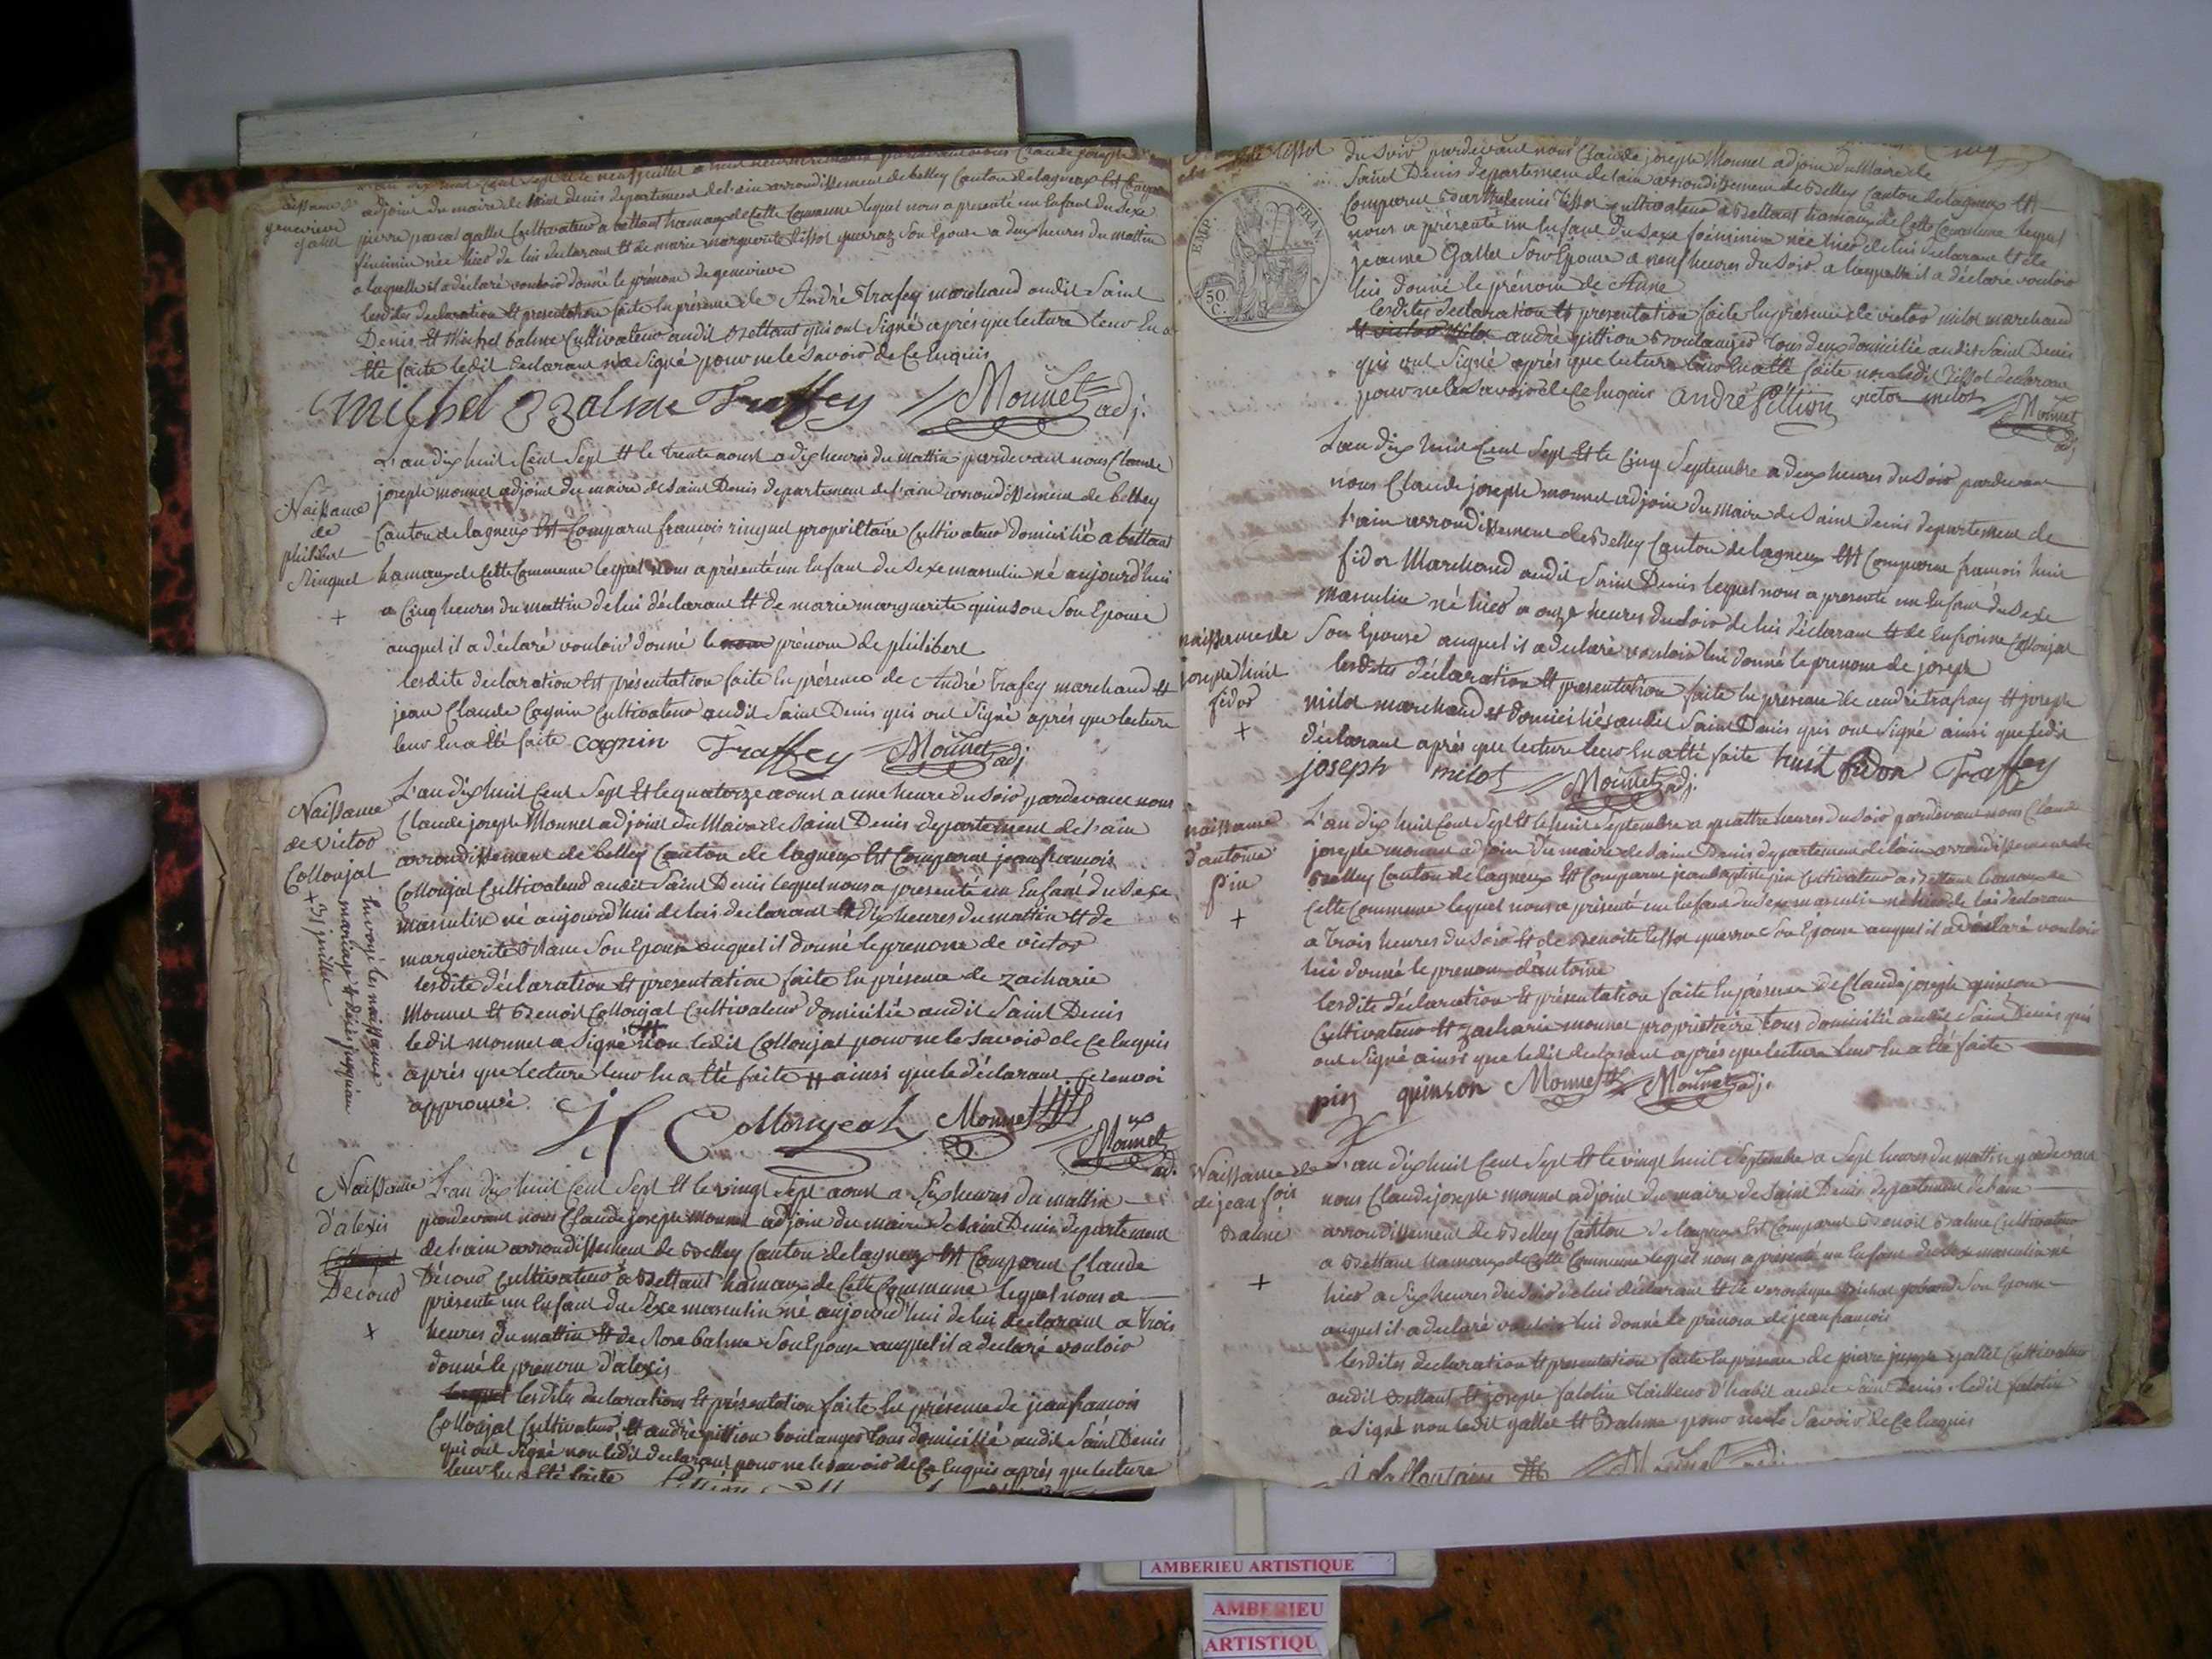 naissance de
genevieve
gallet
adjoint du maire de saint denis departement de l'ain arrondissement de belley Canton de lagneux Est Comparu
pierre pascal gallet Cultivateur a bettant hamaux de Cette Commune lequel nous a presenté un Enfant du Sexe
féminin née hier de lui declarant Et de marie margueritte tissot guerraz son Epouse a deux heures du mattin
a laquelle il a déclaré vouloir donné le prénom de genevieve
lesdites declaration Et presentation faite En présence de André trafey marchand audit Saint
Denis Et Michel balme Cultivateur audit Bettant qui ont Signé aprés que lecture leur En a
Eté faite ledit declarant n'a Signé pour ne le Savoir de Ce Enquis
michel Balme Traffey Monnet adj.
Naissance
de
philibert
Ringuet
+
L'an dix huit Cent Sept Et le trente aoust a dix heures du mattin pardevant nous Claude
joseph monnet adjoint du maire de saint Denis departement de l'ain arrondissement de belley
Canton de lagneux Est Comparu francois ringuet propriétaire Cultivateur domicilié a bettant
hamaux de Cette Commune lequel nous a présenté un Enfant du Sexe masculin né aujourd'hui
a Cinq heures du mattin de lui déclarant Et de marie marguerite quinson Son Epouse
auquel il a déclaré vouloir donné le nom prénom de philibert
lesdite declaration Est présentation faite En présence de André trafey marchand Et
jean Claude Cagnin Cultivateur audit Saint Denis qui ont Signé aprés que lecture
leur En a Eté faite cagnin Traffey Monnet adj.
Naissance
de victor
Collonjat
+ 31 juillet
Envoié les naissance
mariage et déses jusquau
L'an dix huit Cent Sept Et le quatorze aoust a une heure du Soir pardevant nous
Claude joseph Monnet adjoint du Maire de Saint Denis departement de l'ain
arrondissement de belley Canton de lagneux Est Comparu jean francois
Collonjat Cultivateur audit Saint Denis lequel nous a presenté un Enfant du Sexe
masculin né aujourd'hui de lui declarant Et dix heures du mattin Et de
marguerite Son Epouse auquel il donné le prenom de victor
lesdite déclaration Et presentation faite En présence de zacharie
Monnet Et Benoit Collonjat Cultivateur domicilié audit Saint Denis
ledit monnet a Signé non ledit Collonjat pour ne le Savoir de Ce Enquis
aprés que lecture leur En a Eté faite # ainsi que le déclarant. Ce renvoi
approuvé. Collonjeat Monnet
Monnet
adj.
Naissance
d'alexis
Décour
x
L'an dix huit Cent Sept Et le vingt Sept aoust a Six heures du mattin
pardevant nous Claude joseph monnet adjoint du maire de Saint Denis departement
de l'ain arrondissement de Belley Canton de lagneux Est Comparu Claude
Décour Cultivateur a Bettant hamaux de Cette Commune lequel nous a
présenté un Enfant du Sexe masculin né aujourd'hui de lui declarant a trois
heures du mattin Et de Rose balme Son Epouse auquel il a declaré vouloir
donné le prenom d'alexis
lesdites declaration Et présentation faite En présence de jean francois
Collonjat Cultivateur Et andré pittion boulanger tous domicilié audit Saint Denis
qui ont Signé non ledit declarant pour ne le savoir de Ce Enquis aprés que lecture
leur En a Eté faite
tissot
EMP. FRAN.
50
C.
du Soir pardevant nous Claude joseph Monnet adjoint du Maire de
Saint Denis departement de l'ain arrondissement de Belley Canton de lagneux Est
Comparu Barthelemie tissot Cultivateur a Bettant hamaux de Cette Commune lequel
nous a présenté un Enfant du Sexe féminin née hier de lui declarant Et de
jeanne Gallet Son Epouse a neuf heures du Soir a laquelle il a déclaré vouloir
lui donné le prénom de
lesdites declaration Et presentation faite En présence de victor milot marchand
andré pittion Boulanger tous deux domicilié audit Saint Denis
qui ont Signé aprés que lecture leur En a Eté faite non ledit tissot declarant
pour ne le Savoir de Ce Enquis andré pittion victor milot Monnet
adj
naissance de
joseph huit
fidor
+
L'an dix huit Cent Sept Et le Cinq Septembre a deux heures du Soir pardevant
nous Claude joseph monnet adjoint du maire de Saint denis departement de
l'ain arrondissement de Belley Canton de lagneux Est Comparu francois huit
fidor Marchand audit Saint Denis lequel nous a presenté un Enfant du Sexe
masculin né hier a onze heures du Soir de lui déclarant Et de Enfroisine Collonjat
Son Epouse auquel il a declaré vouloir lui donné le prenom de joseph
lesdites déclaration Et presentation faite En présence de andré trafay Et joseph
milot marchand Et domiciliés audit Saint Denis qui ont Signé ainsi que ledit
déclarant aprés que lecture leur En a Eté faite huit fidor Traffey
joseph milot Monnet adj.
naissance
d'antoine
pin
+
L'an dix huit Cent Sept Et le huit Septembre a quattre heures du Soir pardevant nous Claude
joseph monnet adjoint du maire de Saint Denis departement de l'ain arrondissement de
Belley Canton de lagneux Est Comparu jean baptiste pin Cultivateur a Bettant hamaux de
Cette Commune lequel nous a présenté un Enfant du Sexe masculin né hier de lui déclarant
a trois heures du Soir Et de Benoite tissot guerra Son Epouse auquel il a déclaré vouloir
lui donné le prenom d'antoine
lesdite déclaration Et présentation faite En présence de Claude joseph quinson
Cultivateur Et zacharie monnet proprietaire tous domicilié audit Saint Denis qui
ont Signé ainsi que ledit declarant aprés que lecture leur En a Eté faite
pin quinson Monnet Monnet adj.
Naissance de
de jean fois
Balme
+
L'an dix huit Cent Sept Et le vingt huit Septembre a Sept heures du mattin pardevant
nous Claude joseph monnet adjoint du maire de Saint Denis departement de l'ain
arrondissement de Belley Canton de lagneux Est Comparu Benoit Balme Cultivateur
a Bettant hamaux de Cette Commune lequel nous a presenté un Enfant du Sexe masculin né
hier a Six heures du Soir de lui déclarant Et de veronique Son Epouse
auquel il a declaré vouloir lui donné le prénom de jean francois
lesdites declaration Et presentation faite En présence de pierre joseph gallet Cultivateur
audit Bettant Et joseph falotin tailleur d'habit audit Saint Denis. ledit falotin
a Signé non ledit gallet Et Balme pour ne le Savoir de Ce Enquis
AMBERIEU ARTISTIQUE
AMBERIEU
ARTISTIQU